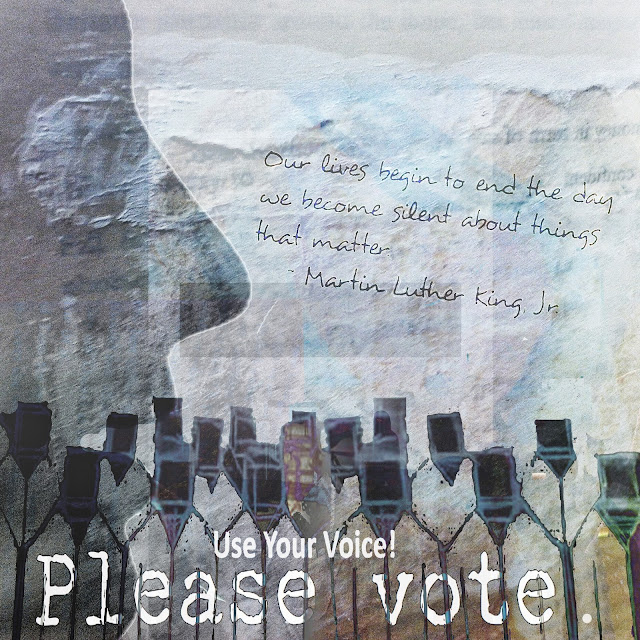 Our lives begin to end the day
we become silent about things
that matter
- Martin Luther King, Jr.
Use Your Voice!
Please vote.